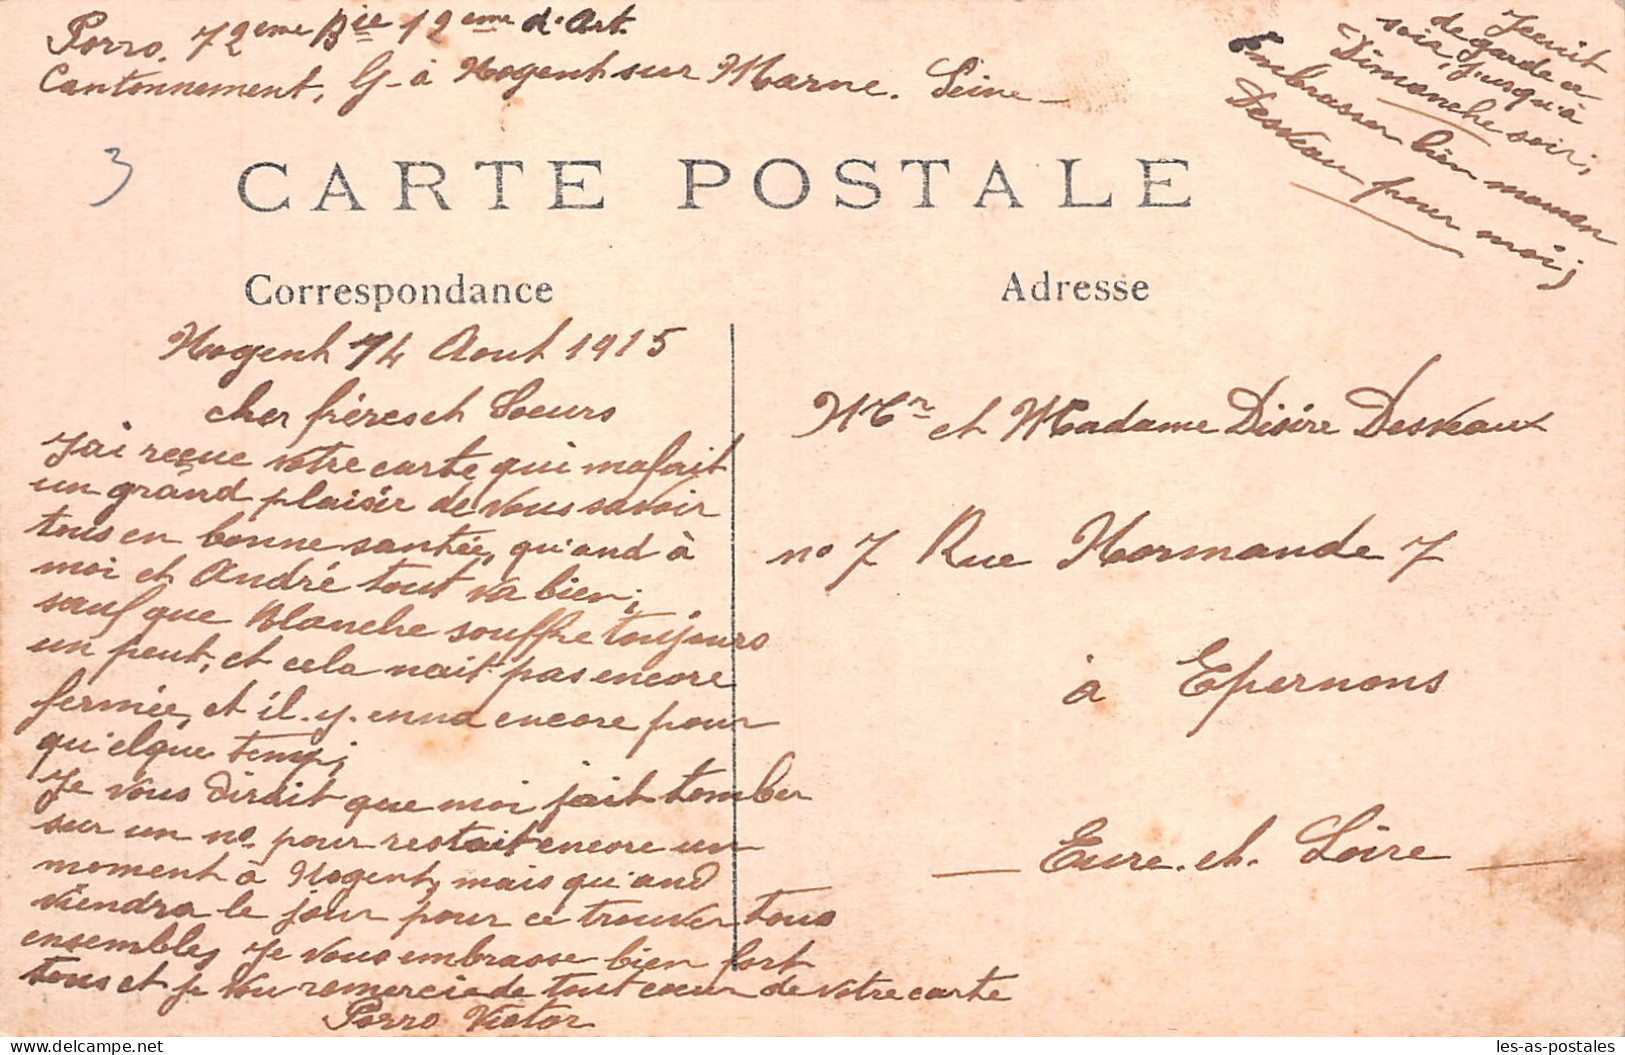 Porro. 72eme Bie 12eme d'Art.
Cantonnement. G- à Nogent sur Marne. Seine -
Je suit
de garde ce
soir, jusqu'à
Dimanche soir;
Embrasser bien maman
Desveau pour moi;
3
CARTE POSTALE
Correspondance
Adresse
Nogent 14 Aout 1915
cher fréres et Soeurs
J'ai reçue votre carte qui ma fait
un grand plaisir de vous savoir
tous en bonne santée, qu'and à
moi et André tout va bien;
sauf que Blanche souffre toujours
un peut, et cela nait pas encore
fermée, et il.y.enna encore pour
qu'elque temp;
Je vous dirait que moi jait tomber
sur un no. pour restait encore un
moment à Nogent, mais qu'and
viendra le jour pour ce trouver tous
ensembles, Je vous embrasse bien fort
tous et je vou remercie de tout cœur de votre carte
Porro Victor
Mr et Madame Désire Desveaux
no 7 Rue Normande 7
à Epernons
Eure. et. Loire
les-as-postales
www.delcampe.net